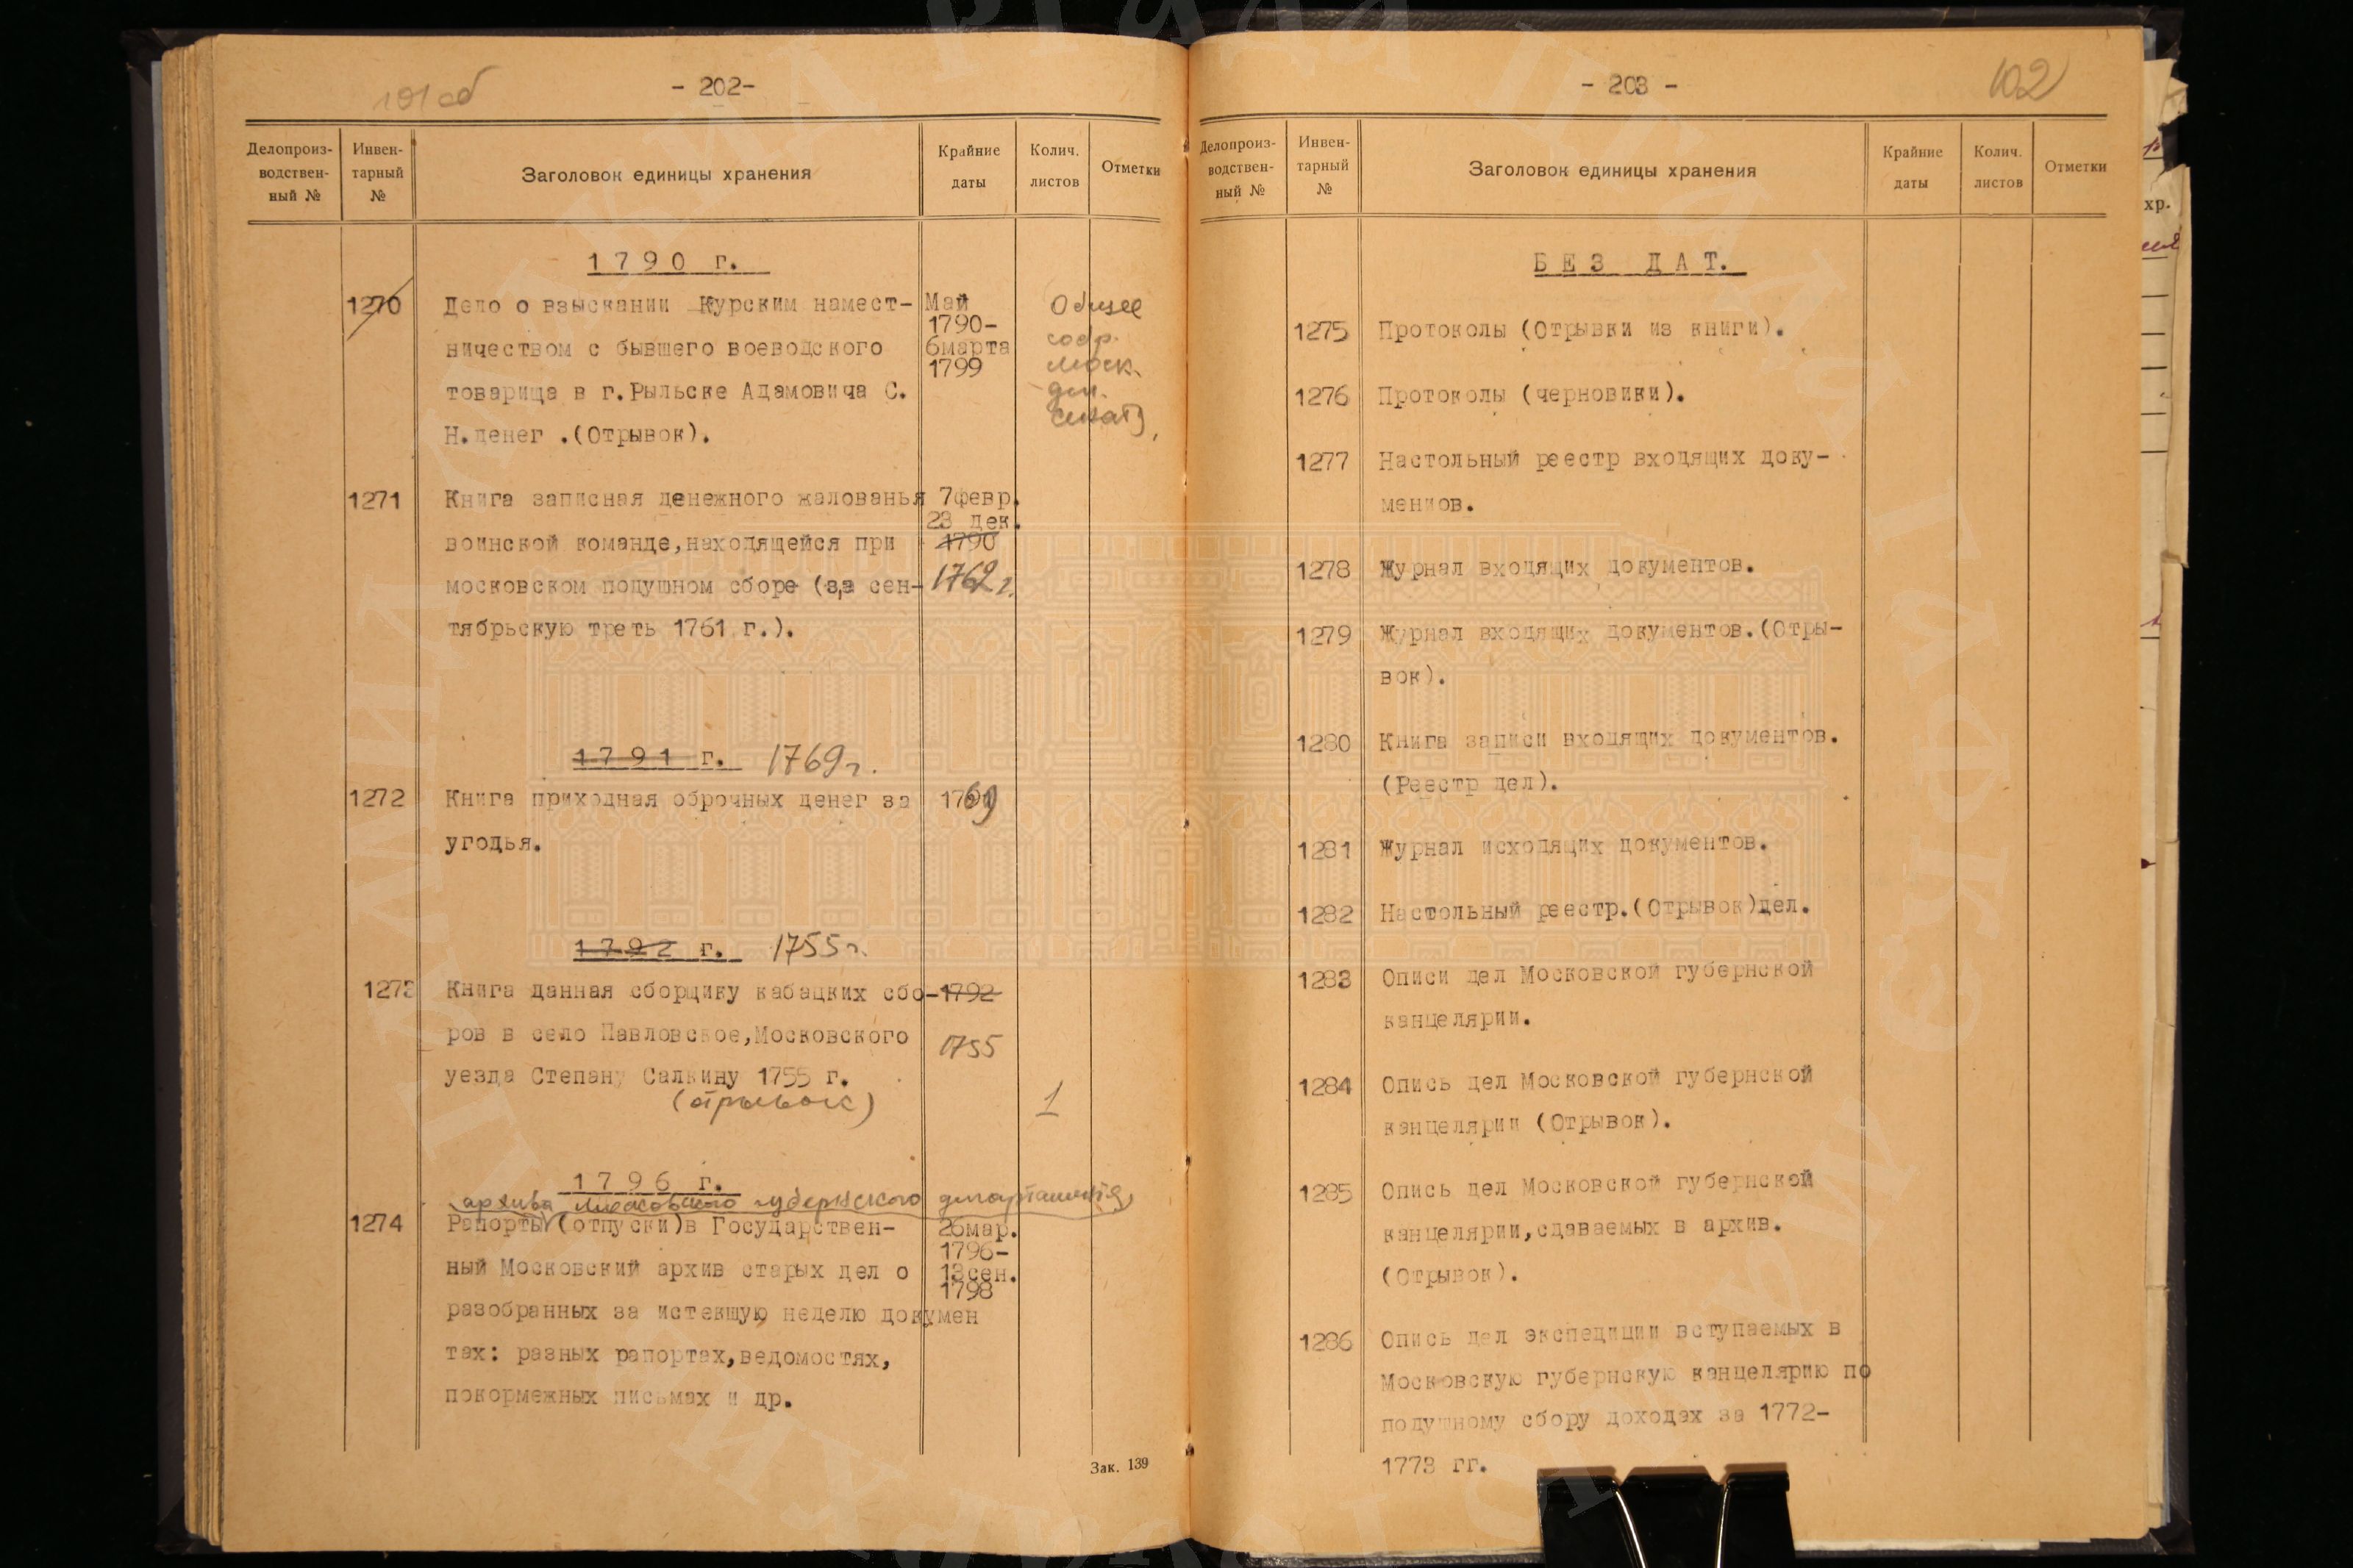 101 об
- 202-
Делопроиз-
водствен-
ный №
Инвен-
тарный
№
Заголовок единицы хранения
Крайние
даты
Колич.
листов
Отметки
1790 г.
1270 Дело о взыскании Курским намест- Май Общее
1790-
ничеством с бывшего воеводского 6марта собр.
1799 моск.
товарища в г.Рыльске Адамовича С. деп.
сената,
Н.денег .(Отрывок).
1271 Книга записная денежного жалованья 7февр.
23 дек.
воинской команде,находящейся при 1790
московском подушном сборе (за сен- 1762 г.
тябрьскую треть 1761 г.).
1791 г. 1769 г.
1272 Книга приходная оброчных денег за 1769
угодья.
1792 г. 1755 г.
1273 Книга данная сборщику кабацких сбо- 1792
ров в село Павловское,Московского 1755
уезда Степану Салкину 1755 г.
(отрывок) 1
1796 г.
архива Московского губернского департамента
1274 Рапорты (отпуски)в Государствен- 26мар.
1796-
ный Московский архив старых дел о 13сен.
1798
разобранных за истекшую неделю докумен
тах: разных рапортах,ведомостях,
покормежных письмах и др.
Зак. 139
- 203 -
102
Делопроиз-
водствен-
ный №
Инвен-
тарный
№
Заголовок единицы хранения
Крайние
даты
Колич.
листов
Отметки
БЕЗ ДАТ.
1275 Протоколы (Отрывки из книги).
1276 Протоколы (черновики).
1277 Настольный реестр входящих доку-
мениов.
1278 Журнал входящих документов.
1279 Журнал входящих документов.(Отры-
вок).
1280 Книга записи входящих документов.
(Реестр дел).
1281 Журнал исходящих документов.
1282 Настольный реестр.(Отрывок)дел.
1283 Описи дел Московской губернской
канцелярии.
1284 Опись дел Московской губернской
канцелярии (Отрывок).
1285 Опись дел Московской губернской
канцелярии,сдаваемых в архив.
(Отрывок).
1286 Опись дел экспедиции вступаемых в
Московскую губернскую канцелярию по
подушному сбору доходах за 1772-
1773 гг.
хр.